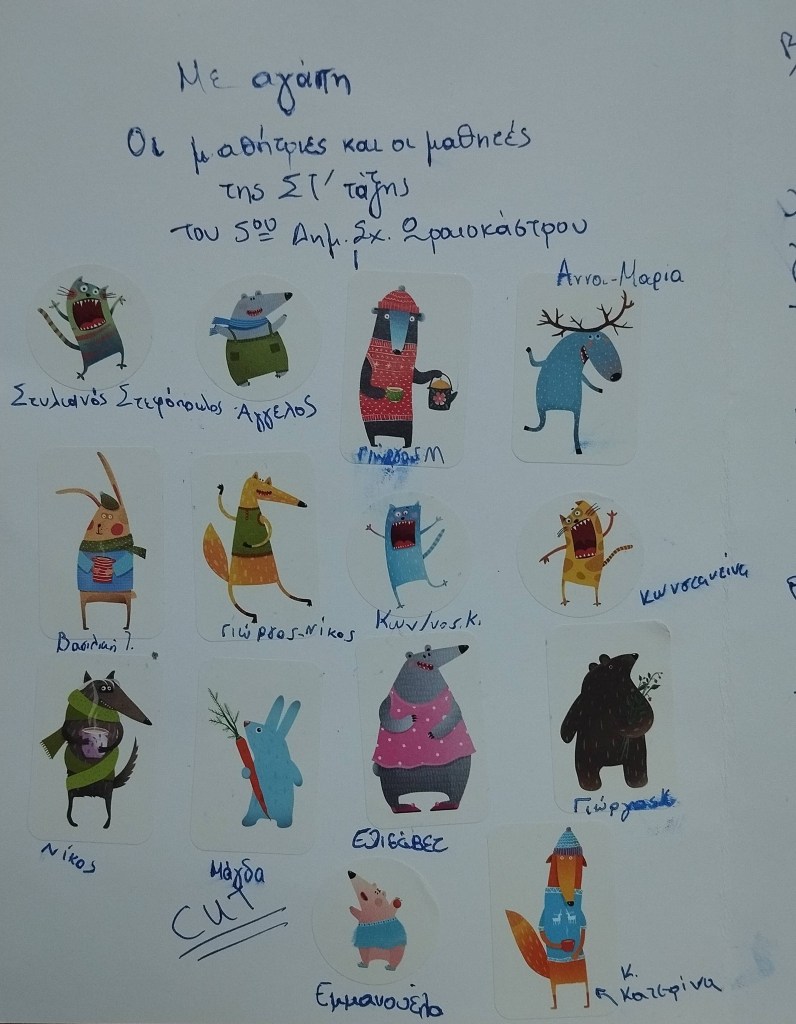 Με αγάπη
Οι μαθήτριες και οι μαθητές
της ΣΤ' τάξης
του 5ου Δημ. Σχ. Ωραιοκάστρου
Άννα-Μαρία
Στυλιανός Στεφόπουλος Άγγελος
Γιώργος Μ
Βασιλική Τ.
Γιώργος-Νίκος
Κων/νος. Κ.
Κωνσταντίνα
Νίκος
Μάγδα
Ελισάβετ
Γιώργος Κ
CUT
Εμμανουέλα
Κ.
Κατερίνα